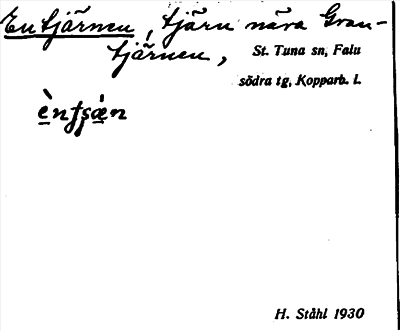 Entjärnen, tjärn nära Gran-
tjärnen, St. Tuna sn, Falu
södra tg, Kopparb. l.
H. Ståhl 1930